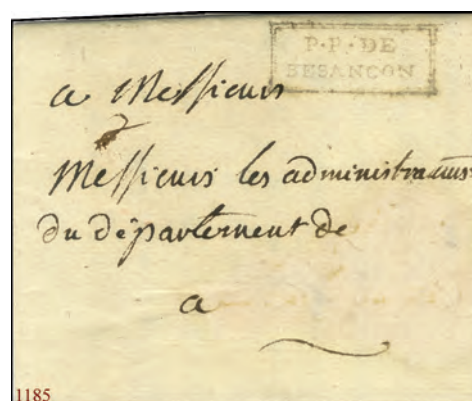 P.P.DE
BESANCON
a Messieurs
Messieurs les administrateurs
du département de
a
1185